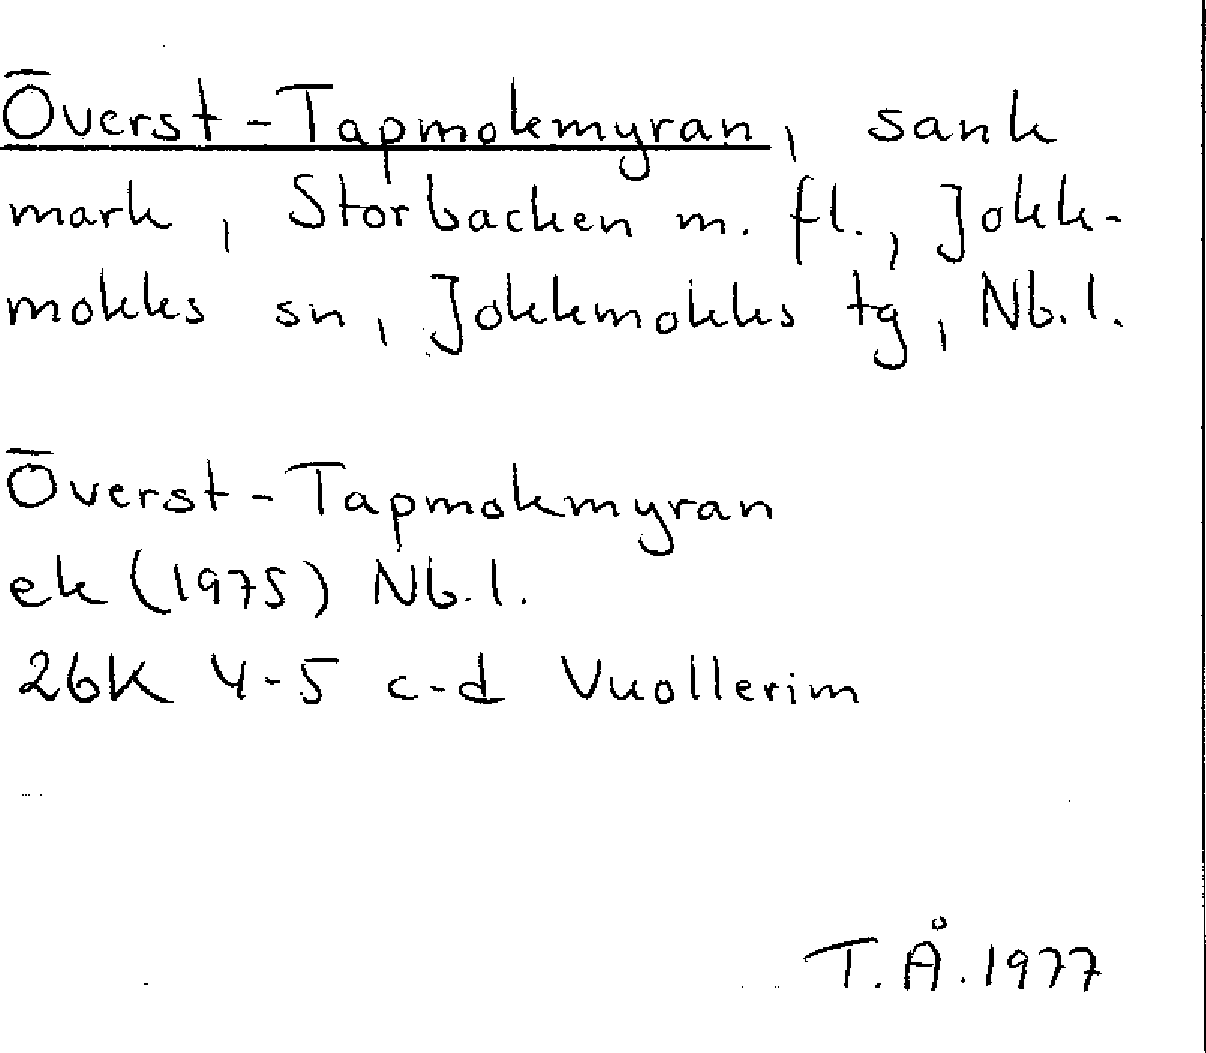 Överst-Tapmokmyran, sank
mark, Storbacken m. fl., Jokk-
mokks sn, Jokkmokks tg, Nb.l.
Överst-Tapmokmyran
ek (1975) Nb.l.
26K 4-5 c-d Vuollerim
T.Å.1977